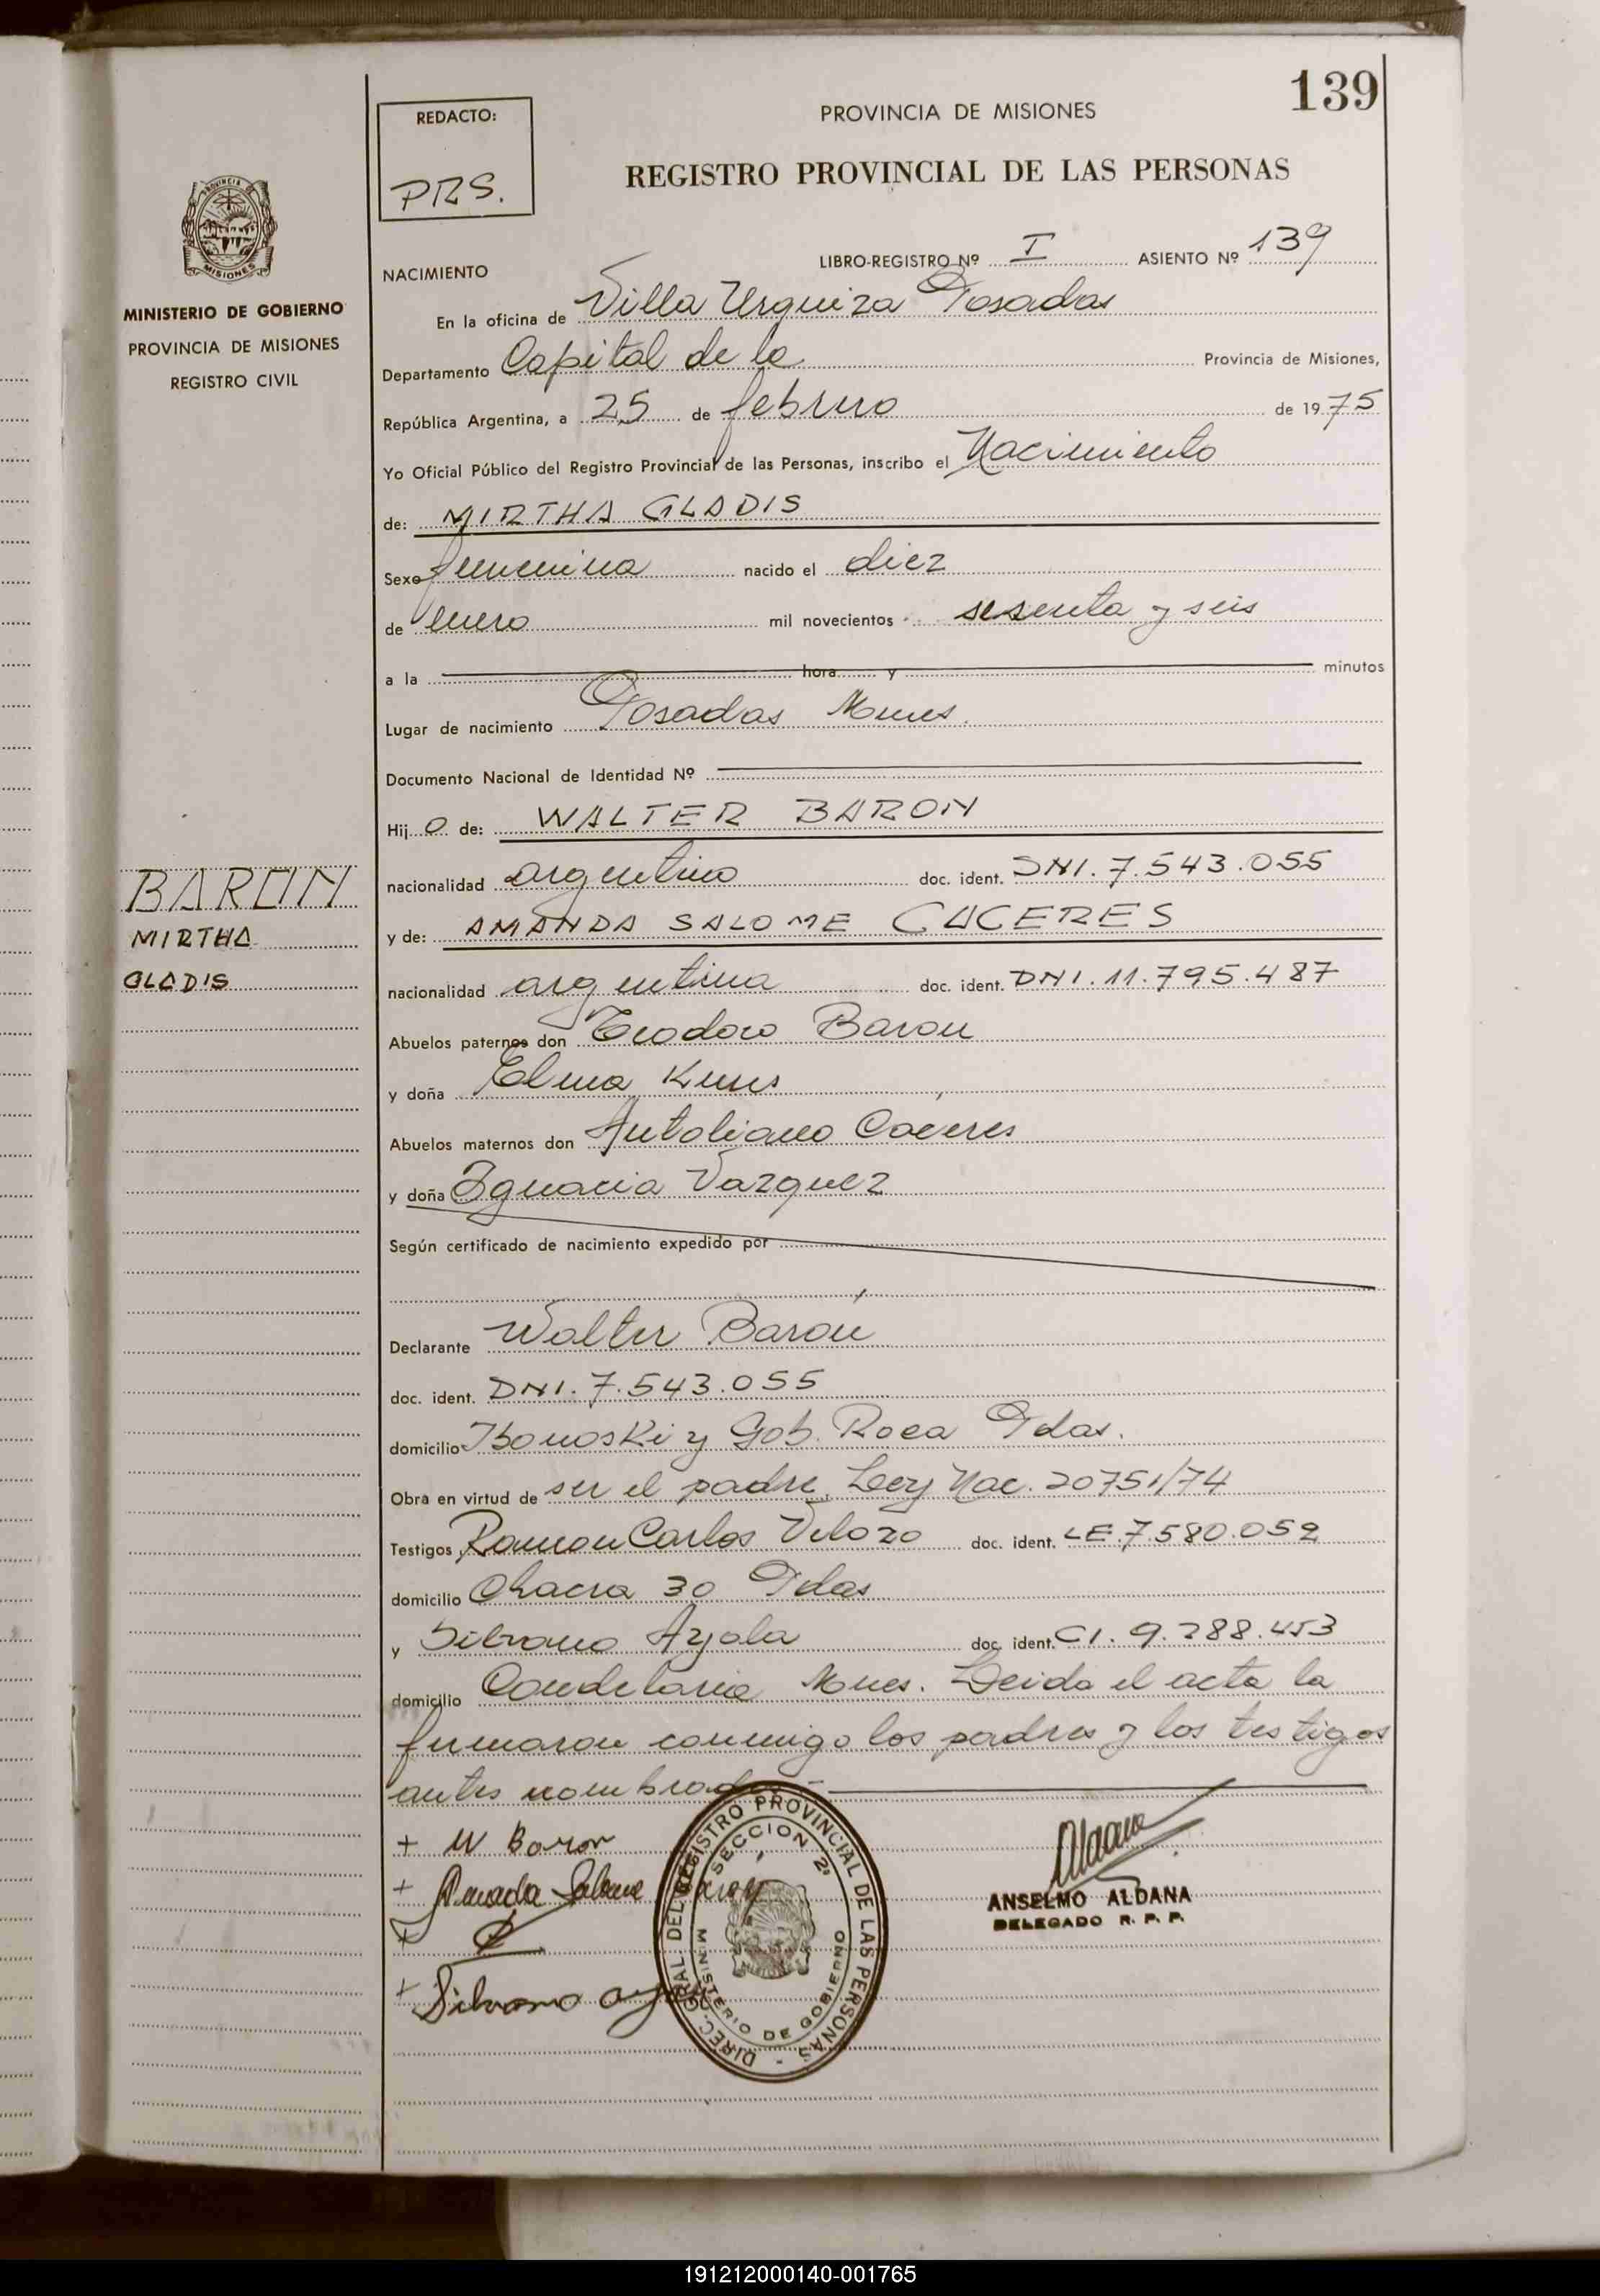 139
REDACTO:
PRS.
PROVINCIA DE MISIONES
REGISTRO PROVINCIAL DE LAS PERSONAS
PROVINCIA
MISIONES
MINISTERIO DE GOBIERNO
PROVINCIA DE MISIONES
REGISTRO CIVIL
NACIMIENTO
LIBRO-REGISTRO Nº I ASIENTO Nº 139
En la oficina de Villa Urquiza Posadas
Departamento Capital de la Provincia de Misiones,
República Argentina, a 25 de febrero de 1975
Yo Oficial Público del Registro Provincial de las Personas, inscribo el Nacimiento
de: MIRTHA GLADIS
Sexo femenina nacido el diez
de enero mil novecientos sesenta y seis
a la hora y minutos
Lugar de nacimiento Posadas Mnes.
Documento Nacional de Identidad Nº
Hijo de: WALTER BARON
nacionalidad argentino doc. ident. DNI. 7.543.055
BARON
MIRTHA
GLADIS
y de: AMANDA SALOME CACERES
nacionalidad argentina doc. ident. DNI. 11.795.487
Abuelos paternos don Teodoro Baron
y doña Elma
Abuelos maternos don Antoliano Caceres
y doña Ignacia Vazquez
Según certificado de nacimiento expedido por
Declarante Walter Baron
doc. ident. DNI. 7.543.055
domicilio y Gob. Roca Pdas.
Obra en virtud de ser el padre, Ley Nac. 20751/74
Testigos Ramon Carlos Velozo doc. ident. LE. 7.580.052
domicilio Chacra 30 Pdas
y Silvano Ayala doc. ident. CI. 9.288.453
domicilio Candelaria Mnes. Leida el acta la
firmaron conmigo los padres y los testigos
antes nombrados
+ W Baron
+ Amada Salome
+
+ Silvano
DIREC. GRAL DEL REGISTRO PROVINCIAL DE LAS PERSONAS
SECCION 2ª
MINISTERIO DE GOBIERNO
ANSELMO ALDANA
DELEGADO R. P. P.
191212000140-001765